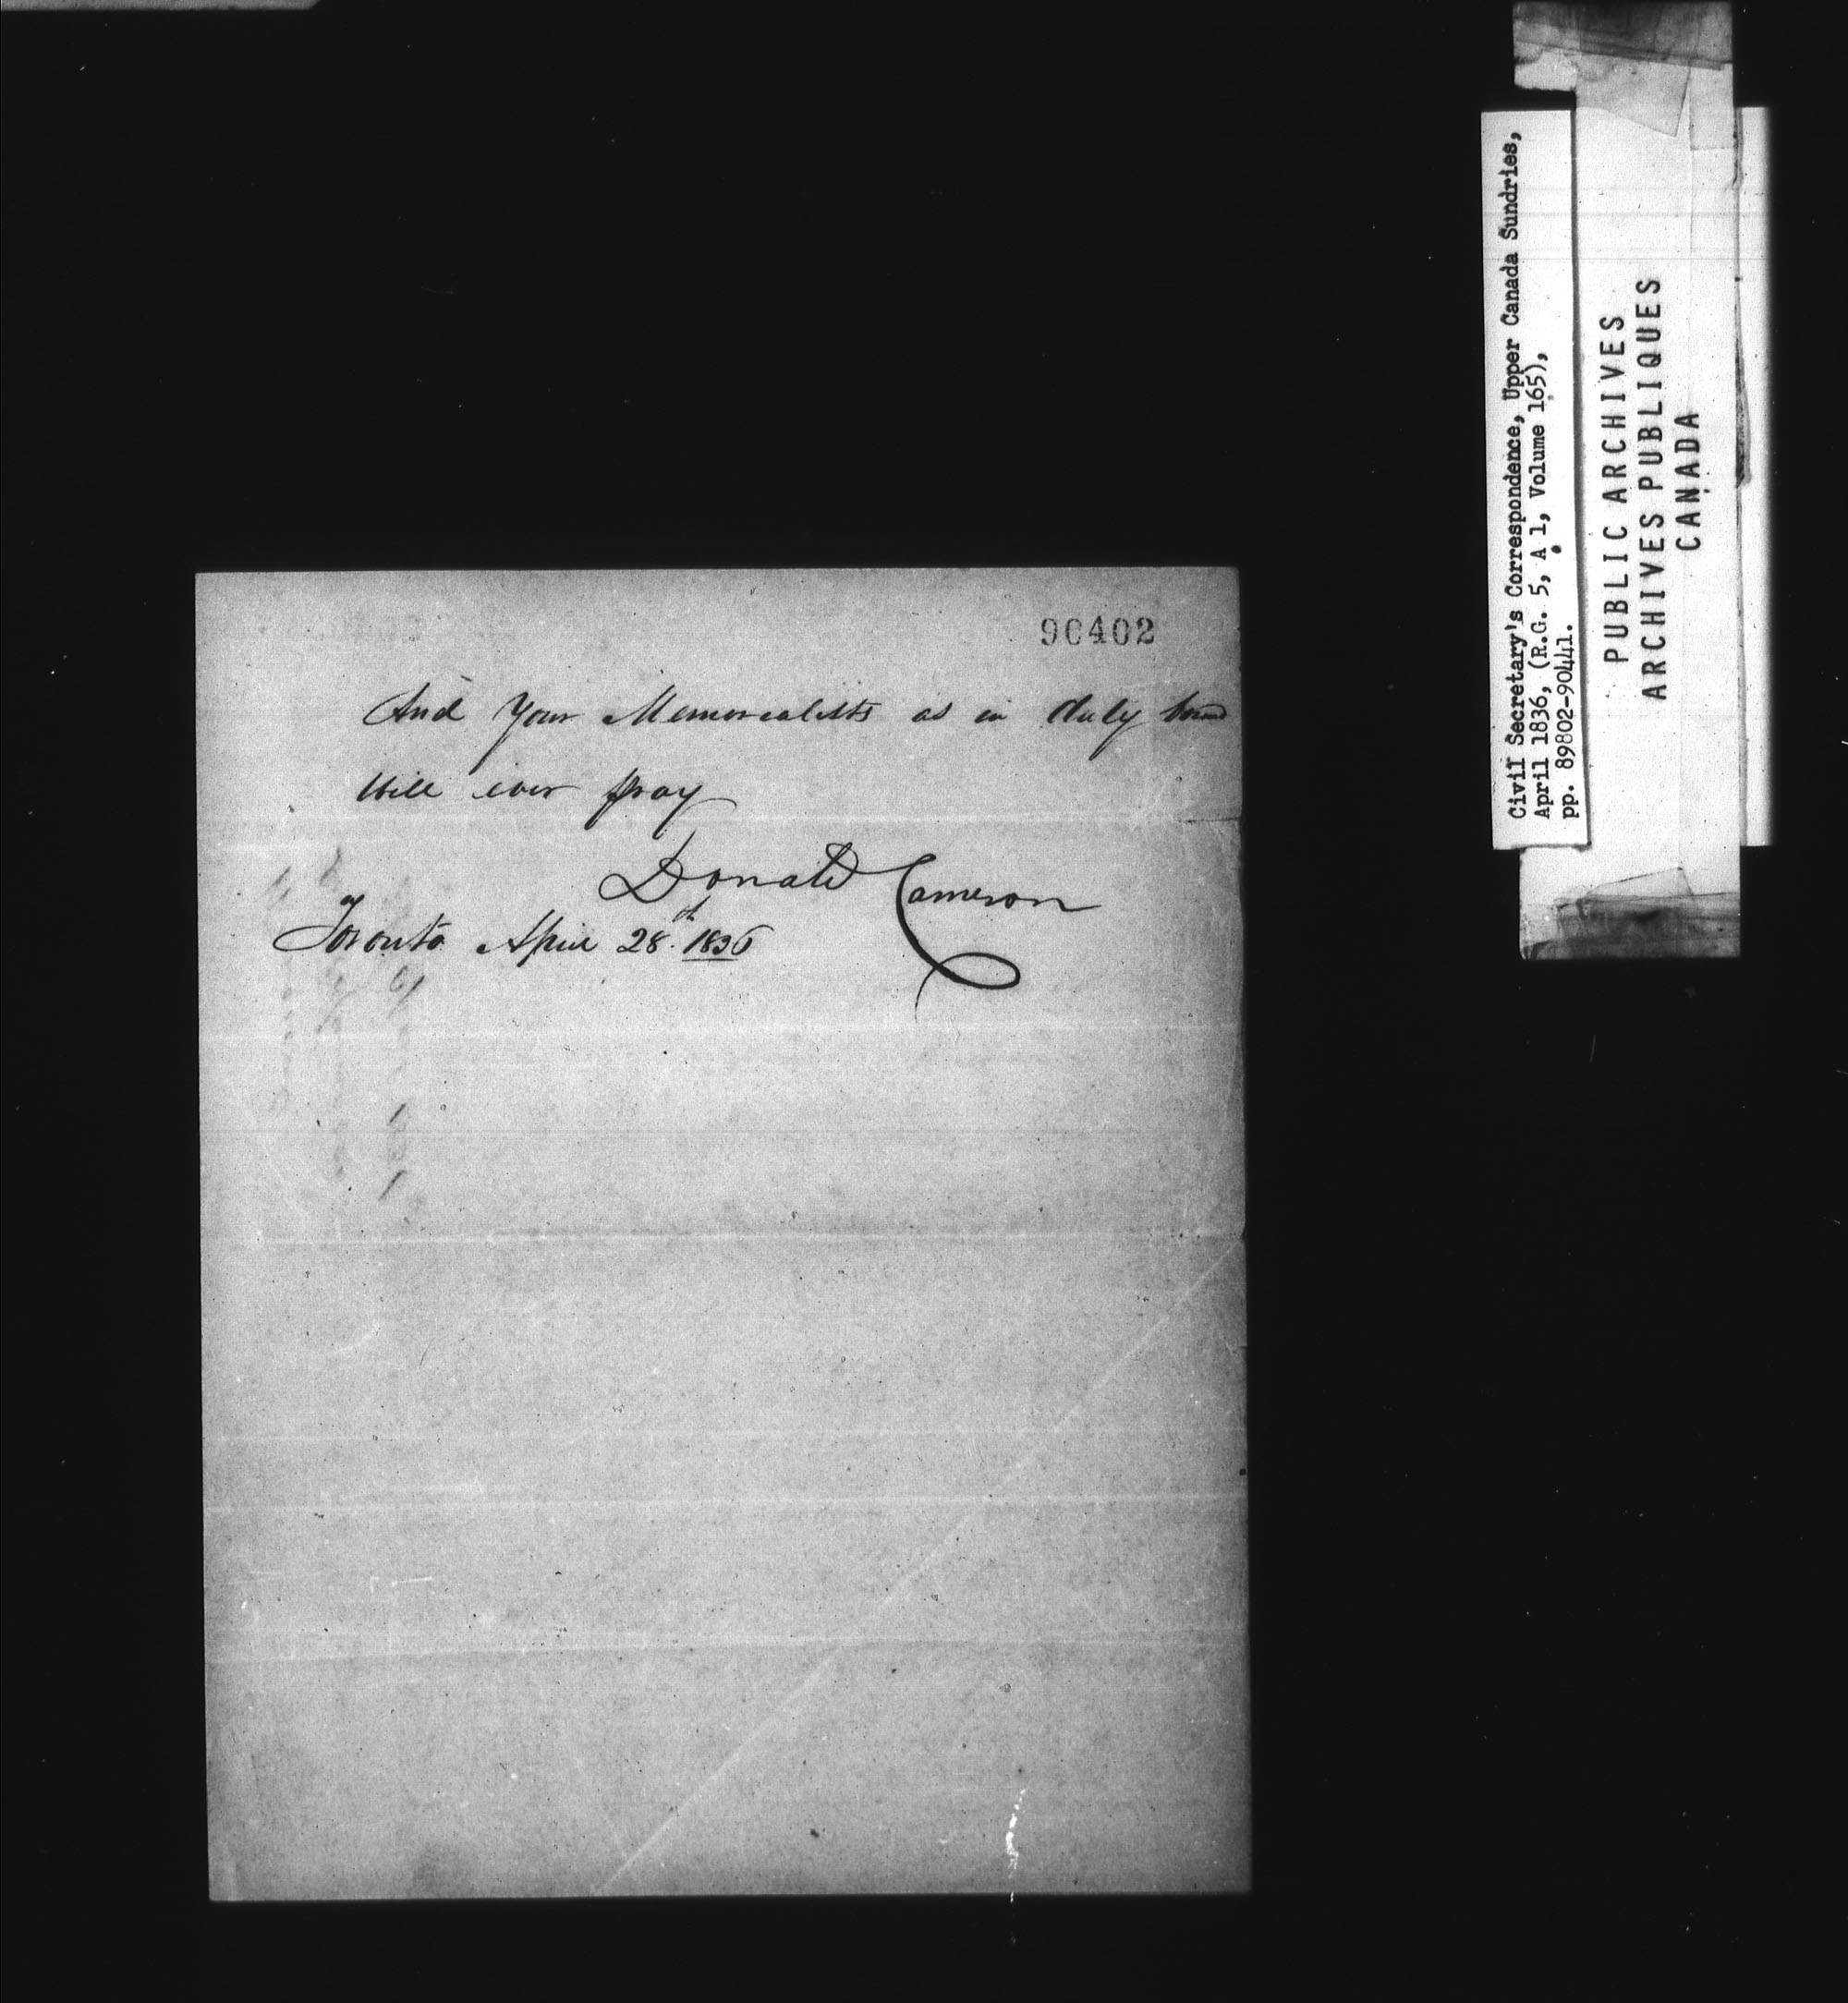 90402
And Your Memorialists as in duty bound
Will ever pray
Donald Cameron
Toronto April 28th 1836
Civil Secretary's Correspondence, Upper Canada Sundries,
April 1836, (R.G. 5, A 1, Volume 165),
pp. 89802-90441.
PUBLIC ARCHIVES
ARCHIVES PUBLIQUES
CANADA